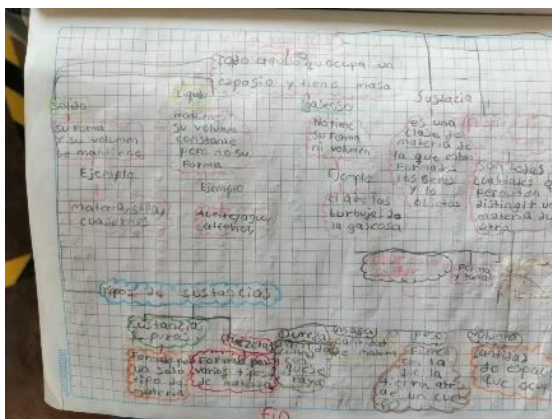 todo aquello que ocupa un
espasio y tiene masa
Solido
su forma
y su volumen
se mantienen
Ejemplo
materia, silla,
cuadernos
Liquido
mantiene
su volumen
constante
pero no su
Forma
Ejemplo
Aceite, agua,
alcohol
gaseoso
No tiene
su forma
ni volumen
Ejemplo
el aire, las
burbujas de
la gaseosa
Sustacia
es una
clase de
materia de
la que estan
Formados
los seres
y lo
objetos
Son todas
cualidades q
permiten
distinguir un
materia de
otra
Forma
y tama
tipos de sustancias
Sustancia
s puras
Formado por
un solo
tipo de
materia
Mezclas
Formado por
varios tipos
de materia
Dureza
con
que se
raya
masa
cantidad
de materia
peso
Fuerza
a la
que la
tierra atrae
de un cuer
Volumen
cantidad
de espacio
que ocup
Fin